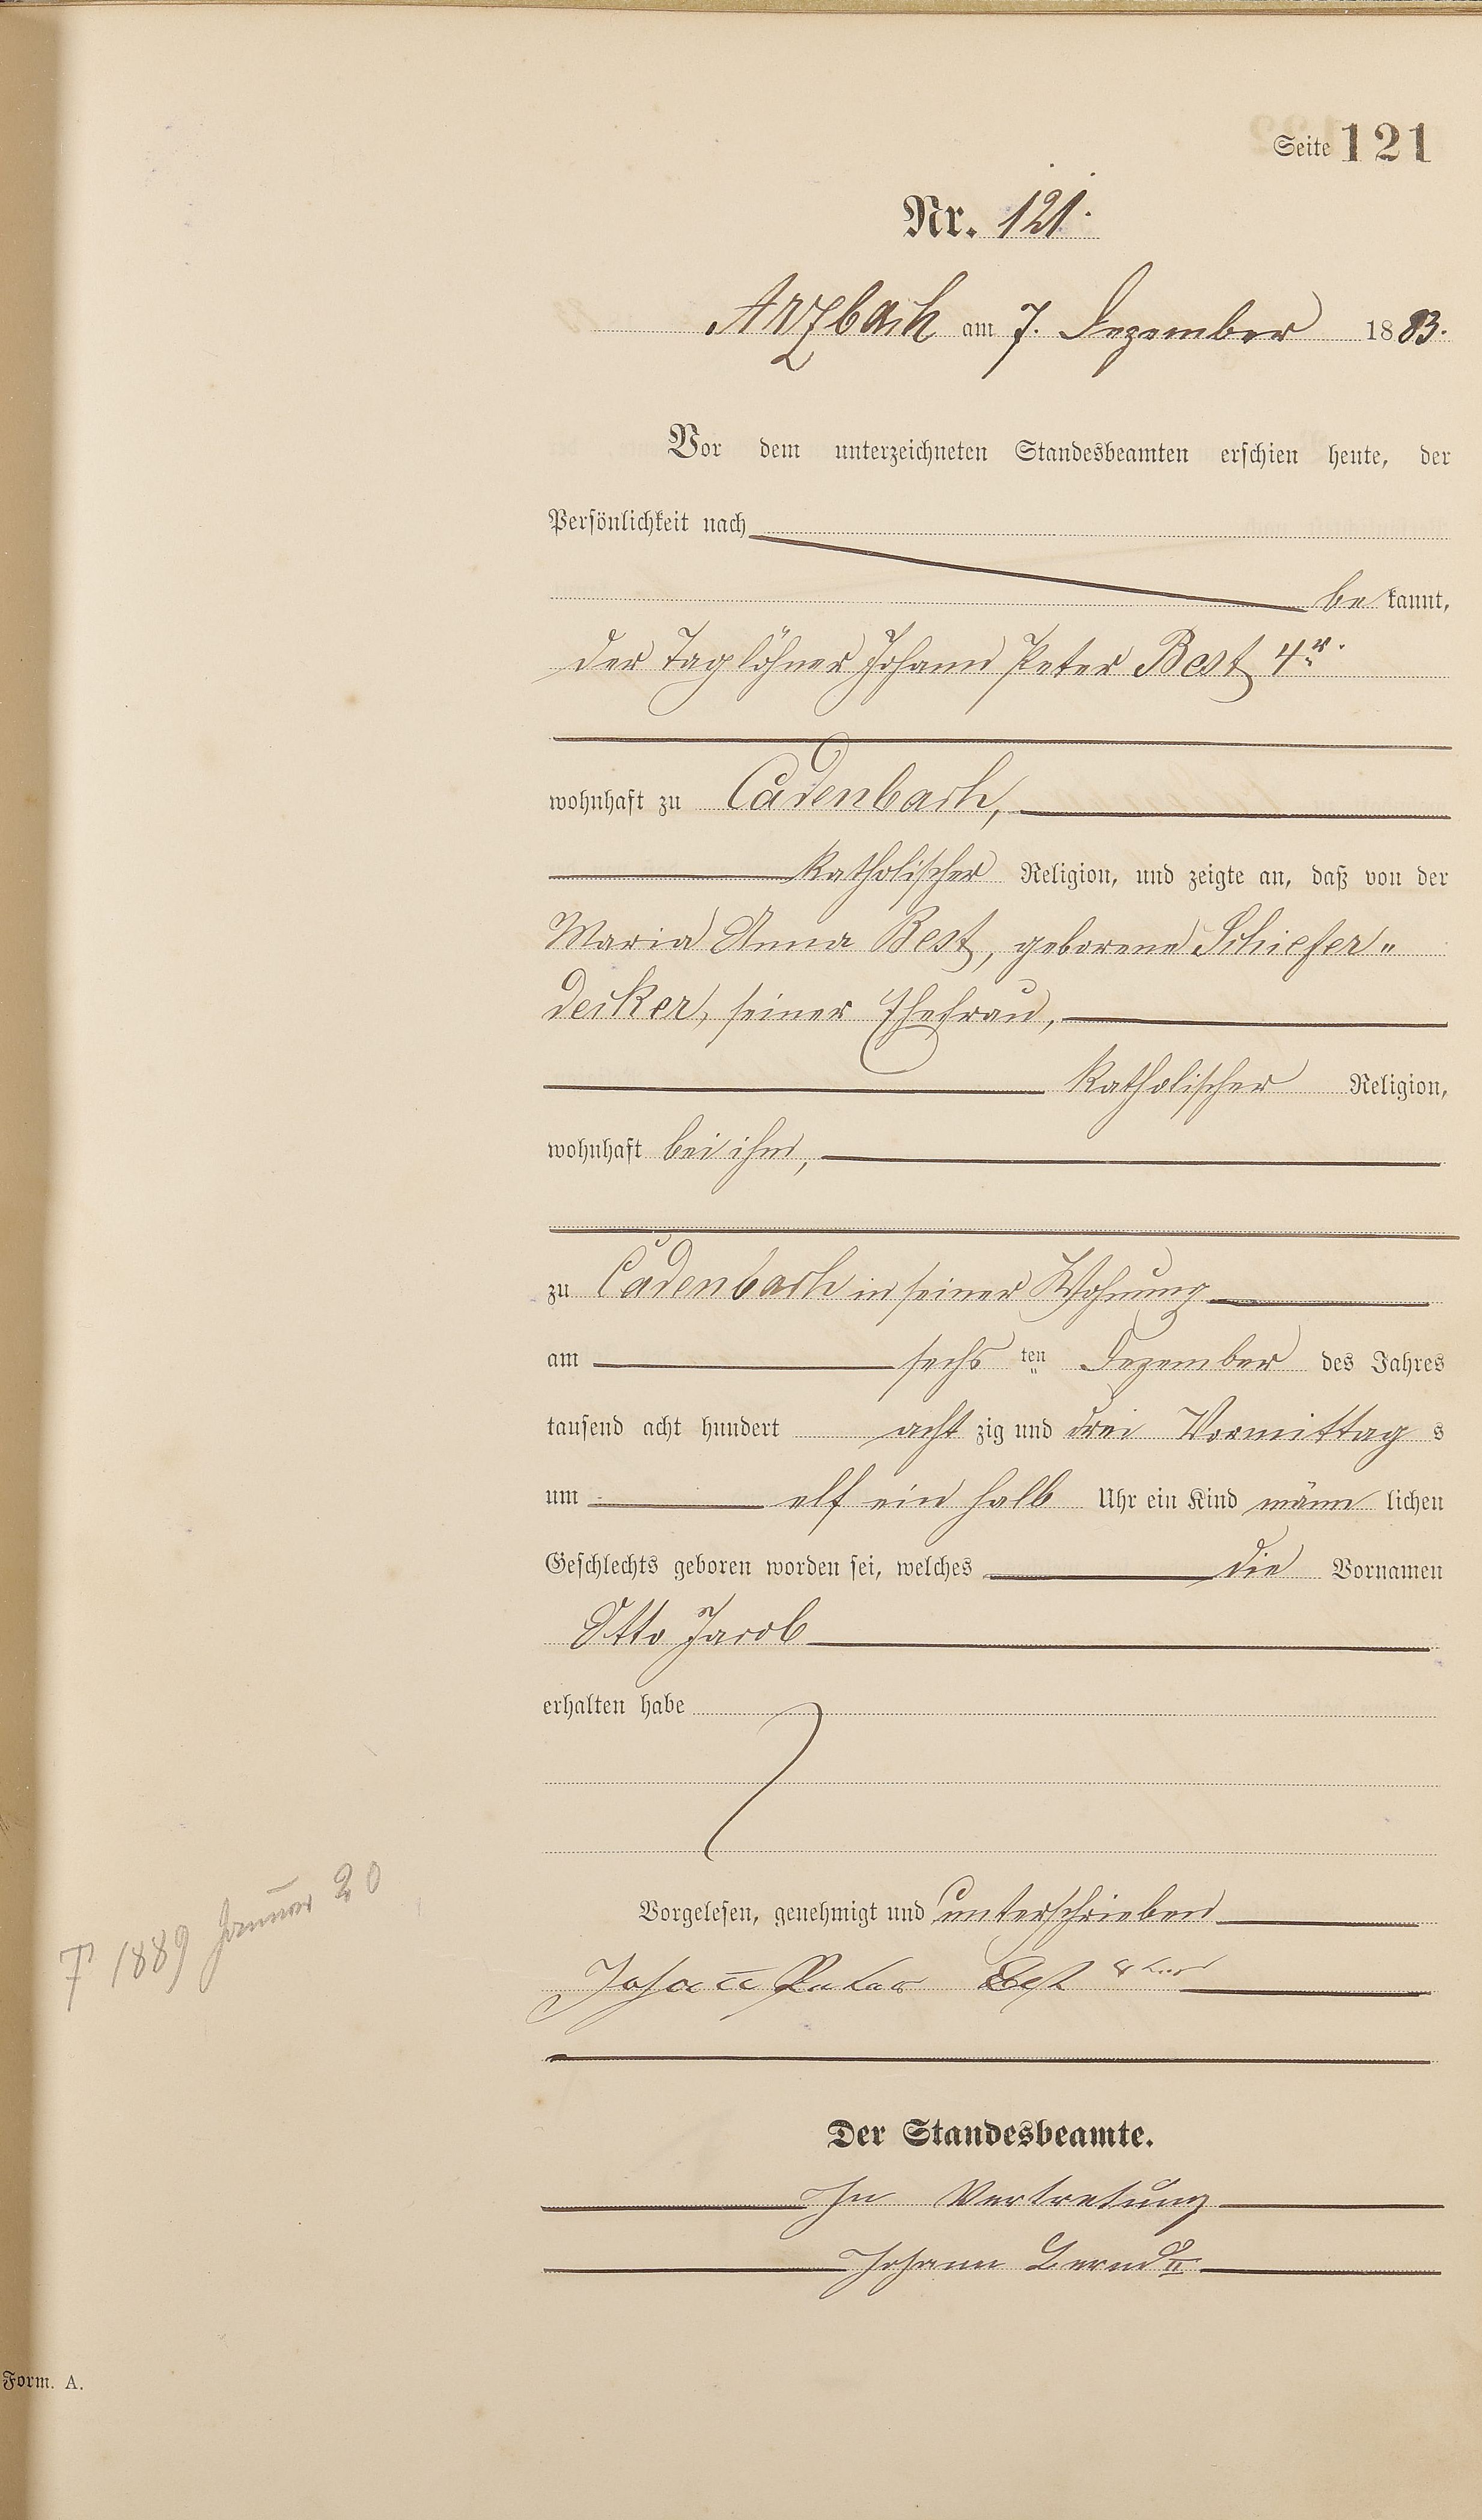 Seite 121
Nr. 121.
Arzbach am 7. Dezember 1883.
Vor dem unterzeichneten Standesbeamten erschien heute, der
Persönlichkeit nach
be kannt,
der Taglöhner Johann Peter Best 4r.
wohnhaft zu Cadenbach,
katholischer Religion, und zeigte an, daß von der
Maria Anna Best, geborene Schiefer„
decker, seiner Ehefrau,
katholischer Religion,
wohnhaft bei ihm,
zu Cadenbach in seiner Wohnung
am sechs ten Dezember des Jahres
tausend acht hundert acht zig und drei Vormittag s
um elf ein halb Uhr ein Kind männ lichen
Geschlechts geboren worden sei, welches die Vornamen
Otto Jacob
erhalten habe
† 1889 Januar 20
Vorgelesen, genehmigt und unterschrieben
Johann Peter Best
Der Standesbeamte.
In Vertretung
Johann Bernd II
Form. A.